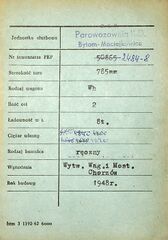 Jednostka służbowa Parowozownia
Bytom-Maciejkowice
Nr inwentarza PKP 50855 2484-8
Szerokość toru 785mm
Rodzaj wagonu Wh
Ilość osi 2
Ładowność w t. 8t.
Ciężar własny
Rodzaj hamulca ręczny
Wytwórnia Wytw. Wag.i Most.
Chorzów
Rok budowy 1948r.